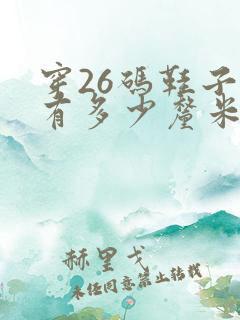 穿26码鞋子
有多少厘米
赫里戈
未经同意禁止转载